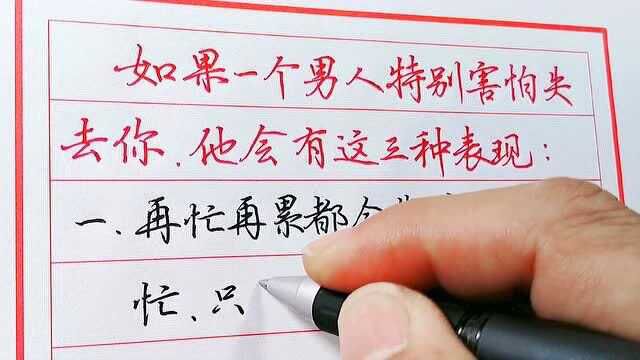 如果一个男人特别害怕失
去你、他会有这三种表现：
一、再忙再累都会
忙、只